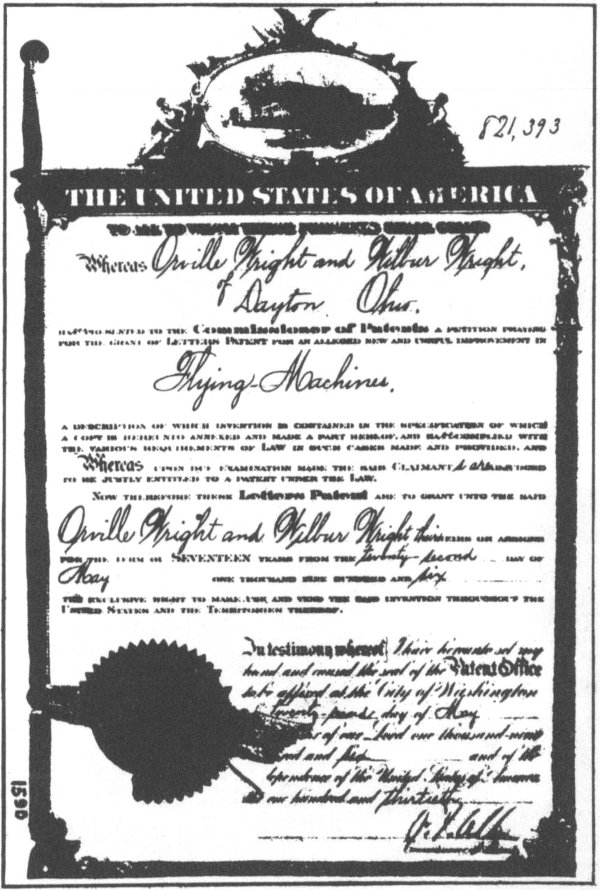 821,393
THE UNITED STATES OF AMERICA
TO ALL TO WHOM THESE PRESENTS SHALL COME:
Whereas Orville Wright and Wilbur Wright,
of
Dayton, Ohio,
PRESENTED TO THE Commissioner of Patents A PETITION PRAYING
FOR THE GRANT OF LETTERS PATENT FOR AN ALLEGED NEW AND USEFUL IMPROVEMENT IN
Flying-Machines,
A DESCRIPTION OF WHICH INVENTION IS CONTAINED IN THE SPECIFICATION OF WHICH
A COPY IS HEREUNTO ANNEXED AND MADE A PART HEREOF, AND COMPLIED WITH
THE VARIOUS REQUIREMENTS OF LAW IN SUCH CASES MADE AND PROVIDED, AND
Whereas UPON DUE EXAMINATION MADE THE SAID CLAIMANTS are ADJUDGED
TO BE JUSTLY ENTITLED TO A PATENT UNDER THE LAW.
NOW THEREFORE THESE Letters Patent ARE TO GRANT UNTO THE SAID
Orville Wright and Wilbur Wright, their HEIRS OR ASSIGNS
FOR THE TERM OF SEVENTEEN YEARS FROM THE twenty-second DAY OF
May ONE THOUSAND NINE HUNDRED AND six
THE EXCLUSIVE RIGHT TO MAKE, USE AND VEND THE SAID INVENTION THROUGHOUT THE
UNITED STATES AND THE TERRITORIES THEREOF.
In testimony whereof I have hereunto set my
hand and caused the seal of the Patent Office
to be affixed at the City of Washington
twenty-second day of May
of our Lord one thousand nine
and six and of the
of the United States of America
the one hundred and thirtieth
1590